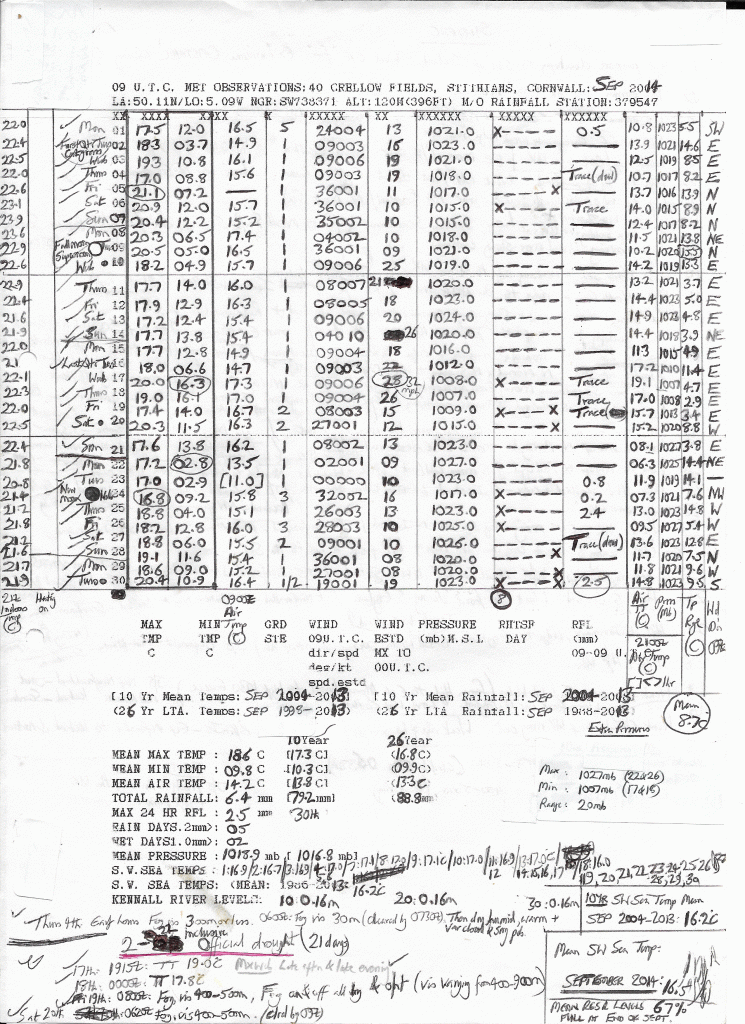 09 U.T.C. MET OBSERVATIONS:40 CRELLOW FIELDS, STITHIANS, CORNWALL: SEP 2014
LA:50.11N/LO:5.09W NGR:SW738371 ALT:120M(396FT) M/O RAINFALL STATION:379547
22.0 Mon 01 17.5 12.0 16.5 5 24004 13 1021.0 X----- 0.5 10.8 1023 5.5 SW
22.4 02 18.3 03.7 14.9 1 09003 16 1023.0 ------ — 13.9 1021 14.6 E
22.5 Wed 03 19.3 10.8 16.1 1 09006 19 1021.0 ------ — 12.5 1019 8.5 E
22.0 Thurs 04 17.0 08.8 15.6 1 09003 19 1018.0 ------ Trace (dew) 10.7 1017 8.2 E
22.6 Fri 05 21.1 07.2 — 1 36001 11 1017.0 -----X — 13.7 1016 13.9 N
23.1 Sat 06 20.9 12.0 15.7 1 36001 10 1015.0 X----- Trace 14.0 1015 8.9 N
23.9 Sun 07 20.4 12.2 15.2 1 35002 10 1015.0 ------ — 12.4 1017 8.2 N
23.6 Mon 08 20.3 06.5 17.4 1 04002 10 1018.0 ------ — 11.5 1021 13.8 NE
22.9 Full moon Supermoon 09 20.5 05.0 16.5 1 36001 09 1021.0 ------ — 10.2 1020 15.5 N
22.6 Wed 10 18.2 04.9 15.7 1 09006 25 1019.0 ------ — 14.2 1019 13.3 E
22.9 Thurs 11 17.7 14.0 16.0 1 08007 21 1020.0 ------ — 13.2 1021 3.7 E
22.4 Fri 12 17.9 12.9 16.3 1 08005 18 1023.0 ------ — 14.4 1023 5.0 E
21.6 Sat 13 17.2 12.4 15.4 1 09006 20 1024.0 ------ — 14.9 1023 4.8 E
21.9 Sun 14 17.7 13.8 15.4 1 04010 26 1020.0 ------ — 14.4 1018 3.9 NE
22.0 Mon 15 17.7 12.8 14.9 1 09004 18 1016.0 ------ — 11.3 1015 4.9 E
21. 16 18.0 06.6 14.7 1 09003 22 1012.0 ------ — 17.2 1010 11.4 E
22.1 Wed 17 20.0 16.3 17.3 1 09006 28 32 mph 1008.0 X----- Trace 19.1 1007 4.7 E
22.3 Thurs 18 19.0 16.1 17.0 1 09004 26 1007.0 ------ Trace 17.2 1008 2.9 E
22.0 Fri 19 17.4 14.0 16.7 2 08003 15 1009.0 X----X Trace 15.7 1013 3.4 E
22.5 Sat 20 20.3 11.5 16.3 2 27001 12 1015.0 -----X — 15.2 1020 8.8 W
22.4 Sun 21 17.6 13.8 16.2 1 08002 13 1023.0 ------ — 08.1 1027 3.8 E
21.8 Mon 22 17.2 02.8 13.5 1 02001 09 1027.0 ------ — 06.3 1025 14.4 NE
20.8 Tues 23 17.0 02.9 [11.0] 1 00000 10 1023.0 ------ 0.8 11.9 1019 14.1 —
21.4 New moon 24 16.8 09.2 15.8 3 32002 16 1017.0 X----- 0.2 07.3 1021 7.6 NW
21.2 Thurs 25 18.8 04.0 15.1 1 26003 13 1023.0 ------ 2.4 13.0 1023 14.8 W
21.8 Fri 26 18.2 12.8 16.0 3 28003 10 1025.0 X----- — 09.5 1027 5.4 W
21.2 Sat 27 18.8 06.0 15.5 2 09001 10 1026.0 ------ Trace (dew) 13.6 1023 12.8 E
21.6 Sun 28 19.1 11.6 15.4 1 36001 08 1020.0 -----X — 11.7 1020 7.5 N
21.7 Mon 29 18.6 09.0 15.2 1 27001 08 1020.0 -----X — 11.8 1021 9.6 W
21.9 Tues 30 20.4 10.9 16.4 1/2 19001 19 1023.0 X----X 2.5 14.8 1023 9.5 S
MAX MIN 0900Z Air Tmp GRD WIND WIND PRESSURE RHTSF RFL
TMP TMP (C) STE 09U.T.C. ESTD (mb)M.S.L DAY (mm)
C C dir/spd MX TO 09-09 U.
deg/kt 00U.T.C.
spd.estd
[10 Yr Mean Temps: SEP 2004-2013 [10 Yr Mean Rainfall: SEP 2004-2013
(26 Yr LTA. Temps: SEP 1988-2013 (26 Yr LTA. Rainfall: SEP 1988-2013
Mean 8.7C
10 Year 26 Year
Extra Pressures
MEAN MAX TEMP : 18.6 C [17.3 C] (16.8C)
MEAN MIN TEMP : 09.8 C [10.3 C] (09.9C)
MEAN AIR TEMP : 14.2 C [13.8 C] (13.3C)
TOTAL RAINFALL: 6.4 mm [79.2mm] (88.8mm)
MAX 24 HR RFL : 2.5 mm 30th
RAIN DAYS.2mm): 05
WET DAYS1.0mm): 02
Max: 1027mb (22&26)
Min: 1007mb (17&18)
Range: 20mb
MEAN PRESSURE : 1018.9 mb [1016.8 mb]
S.W. SEA TEMPS:
S.W. SEA TEMPS: (MEAN: 1986-2013: 16.2C
KENNALL RIVER LEVELS: 10: 0.16m 20: 0.16m 30: 0.16m
10YR SW Sea Temp Mean
SEP 2004-2013: 16.2C
Thurs 4th Early hours Fog vis 300m or less. 0605z: Fog vis 30m (cleared by 0730z). Then dry, humid, warm +
var cloud & sunny pds.
2-22 inclusive Official drought (21 days)
17th: 1915Z: TT 19.0C
18th: 0000Z: TT 17.8C
Fri 19th: 0800z: Fog, vis 400-500m, Fog on & off all day & night (vis varying from 400-900m)
Sat 20th: 0620z: Fog, vis 400-500m. (clrd by 09Z)
Mean SW Sea Temp:
SEPTEMBER 2014: 16.5C
MEAN RES R LEVELS 67%
FULL AT END OF SEPT.